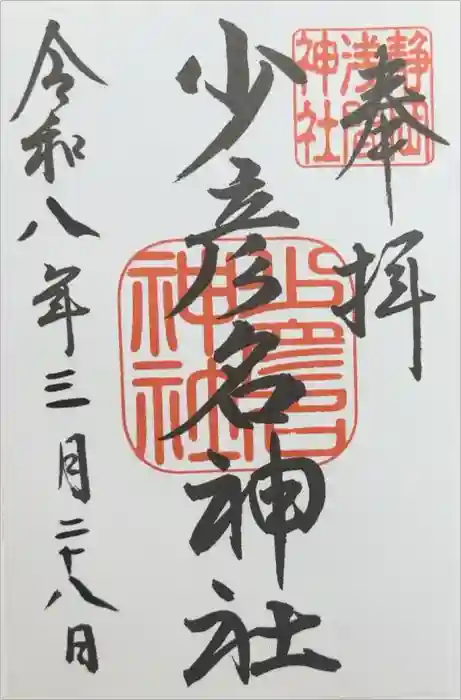 奉拝
静岡浅間神社
少彦名神社
少彦名神社
令和八年三月二十八日